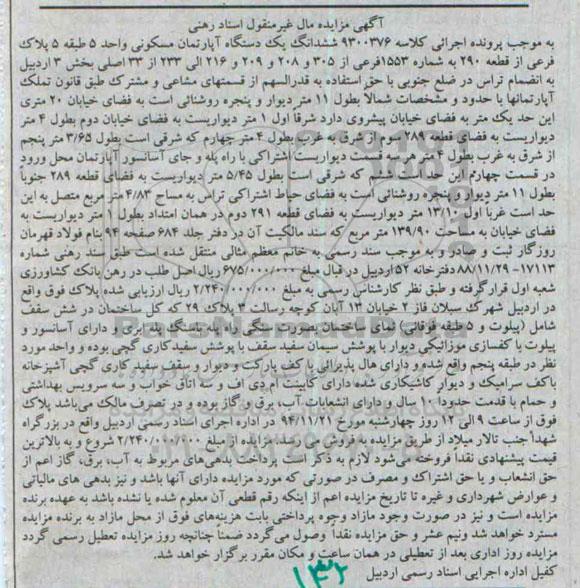 آگهی مزایده مال غیرمنقول اسناد رهنی
به موجب پرونده اجرائی کلاسه ۹۳۰۰۳۷۶ ششدانگ یک دستگاه آپارتمان مسکونی واحد ۵ طبقه ۵ پلاک
فرعی از قطعه ۲۹۰ به شماره ۱۵۵۳فرعی از ۳۰۵ و ۲۰۸ و ۲۰۹ و ۲۱۶ الی ۲۳۳ از ۳۳ اصلی بخش ۳ اردبیل
به انضمام تراس در ضلع جنوبی با حق استفاده به قدرالسهم از قسمتهای مشاعی و مشترک طبق قانون تملک
آپارتمانها با حدود و مشخصات شمالاً بطول ۱۱ متر دیوار و پنجره روشنائی است به فضای خیابان ۲۰ متری
این حد یک متر به فضای خیابان پیشروی دارد شرقا اول ۱ متر دیواریست به فضای خیابان دوم بطول ۴ متر
دیواریست به فضای قطعه ۲۸۹ سوم از شرق به غرب بطول ۴ متر چهارم که شرقی است بطول ۳/۶۵ متر پنجم
از شرق به غرب بطول ۴ متر هر سه قسمت دیواریست اشتراکی با راه پله و جای آسانسور آپارتمان محل ورود
در قسمت چهارم این حد است ششم که شرقی است بطول ۵/۴۵ متر دیواریست به فضای قطعه ۲۸۹ جنوباً
بطول ۱۱ متر دیوار و پنجره روشنائی است به فضای حیاط اشتراکی تراس به مساح ۴/۸۳ متر مربع متصل به این
حد است غرباً اول ۱۳/۱۰ متر دیواریست به فضای قطعه ۲۹۱ دوم در همان امتداد بطول ۱ متر دیواریست به
فضای خیابان به مساحت ۱۳۹/۹۰ متر مربع که سند مالکیت آن در دفتر جلد ۶۸۴ صفحه ۹۴ بنام فولاد قهرمان
روزگار ثبت و صادر و به موجب سند رسمی به خانم معظم مثالی منتقل شده است طبق سند رهنی شماره
۱۷۱۱۳- ۸۸/۱۱/۲۹ دفترخانه ۵۲ اردبیل در قبال مبلغ ۶۷۵/۰۰۰/۰۰۰ ریال اصل طلب در رهن بانک کشاورزی
شعبه اول قرارگرفته و طبق نظر کارشناس رسمی به مبلغ ۲/۲۴۰/۰۰۰/۰۰۰ ریال ارزیابی شده پلاک فوق واقع
در اردبیل شهرک سبلان فاز ۲ خیابان ۱۳ آبان کوچه رسالت ۳ پلاک ۲۹ که کل ساختمان در شش سقف
شامل (پیلوت و ۵ طبقه فوقانی) نمای ساختمان بصورت سنگی راه پله باسنگ پله بری و دارای آسانسور و
پیلوت با کفسازی موزائیکی دیوار با پوشش سیمان سفید سقف با پوشش سفیدکاری گچی بوده و واحد مورد
نظر در طبقه پنجم واقع شده و دارای هال پذیرائی با کف پارکت و دیوار و سقف سفیدکاری گچی آشپزخانه
باکف سرامیک و دیوار کاشیکاری شده دارای کابینت ام دی اف و سه اتاق خواب و سه سرویس بهداشتی
و حمام با قدمت حدوداً ۱۰ سال و دارای انشعابات آب، برق و گاز بوده و در تصرف مالک می‌باشد پلاک
فوق از ساعت ۹ الی ۱۲ روز چهارشنبه مورخ ۹۴/۱۱/۲۱ در اداره اجرای اسناد رسمی اردبیل واقع در بزرگراه
شهدا جنب تالار میلاد از طریق مزایده به فروش می رسد. مزایده از مبلغ ۲/۲۴۰/۰۰۰/۰۰۰ شروع و به بالاترین
قیمت پیشنهادی نقداً فروخته می‌شود لازم به ذکر است پرداخت بدهی‌های مربوط به آب، برق، گاز اعم از
حق انشعاب و یا حق اشتراک و مصرف در صورتی که مورد مزایده دارای آنها باشد و نیز بدهی های مالیاتی
و عوارض شهرداری و غیره تا تاریخ مزایده اعم از اینکه رقم قطعی آن معلوم شده یا نشده باشد به عهده برنده
مزایده است و نیز در صورت وجود مازاد وجوه پرداختی بابت هزینه‌های فوق از محل مازاد به برنده مزایده
مسترد خواهد شد ونیم عشر و حق مزایده نقداً وصول می‌گردد ضمناً چنانچه روز مزایده تعطیل رسمی گردد
مزایده روز اداری بعد از تعطیلی در همان ساعت و مکان مقرر برگزار خواهد شد.
کفیل اداره اجرایی اسناد رسمی اردبیل